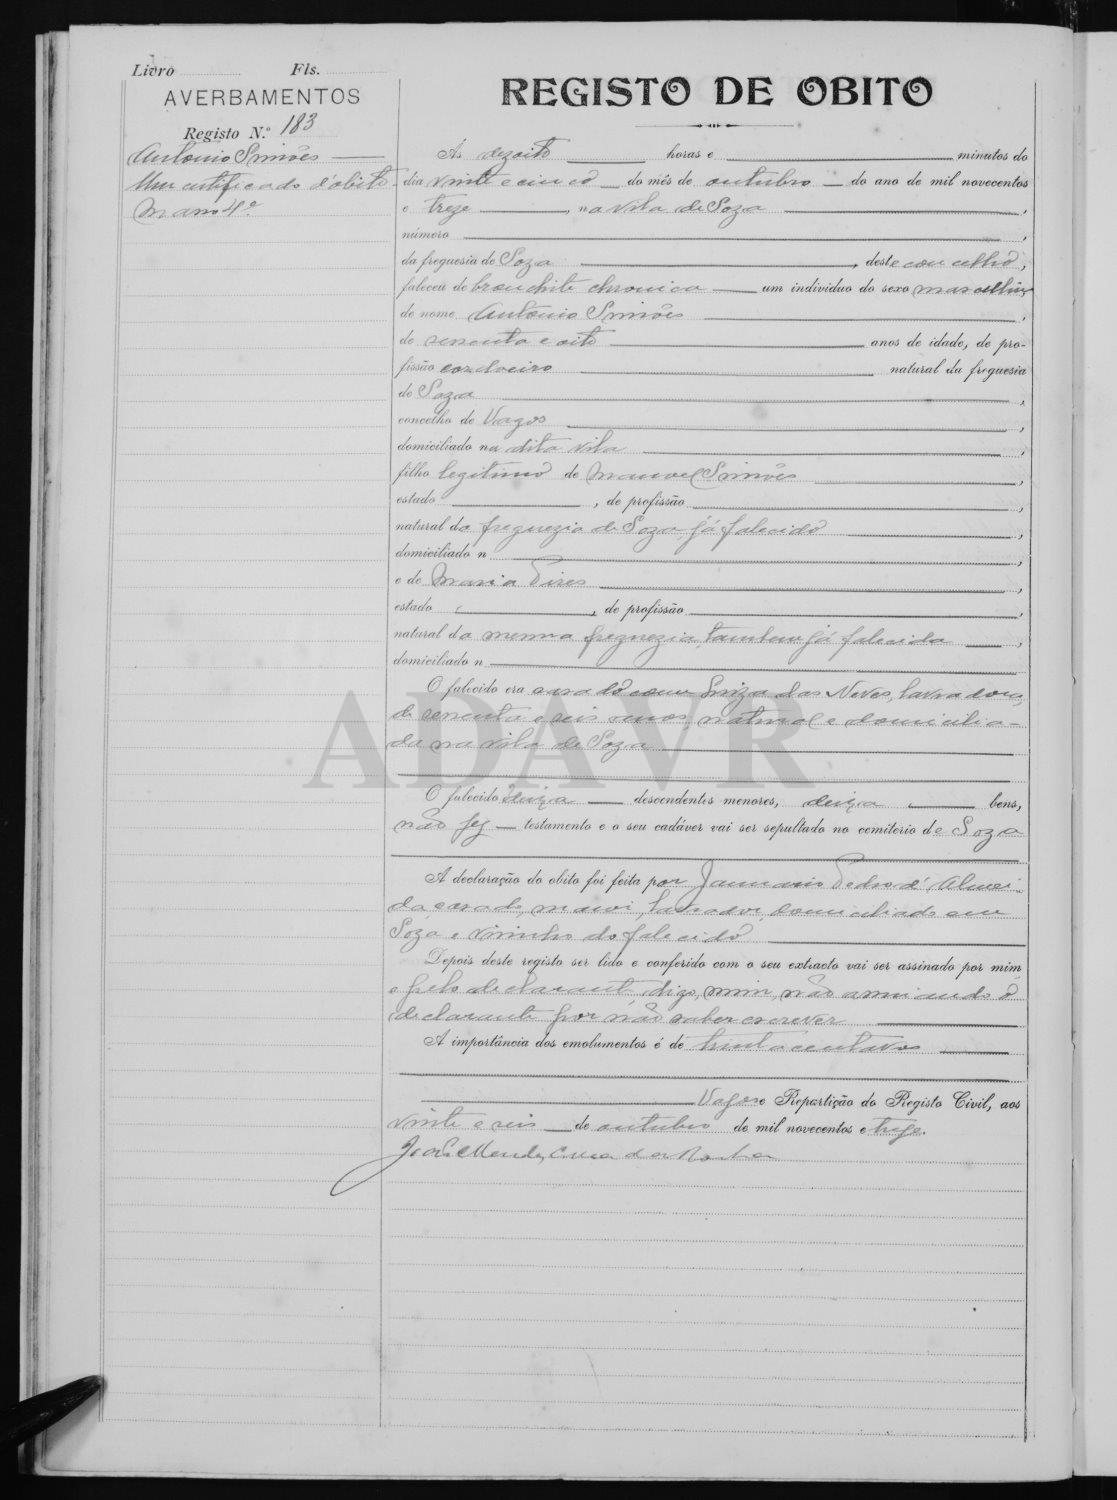 Livro Fls.
AVERBAMENTOS
Registo N.º 183
Antonio Simões
Um certificado d'obito
Maço 4º
REGISTO DE OBITO
Ás dezoito horas e minutos do
dia vinte e cinco do mês de outubro do ano de mil novecentos
e treze, na vila de Soza,
número,
da freguesia de Soza, deste concelho,
faleceu de bronchite chronica um individuo do sexo masculino
de nome Antonio Simões,
de sessenta e oito anos de idade, de pro-
fissão cordoeiro natural da freguesia
de Soza,
concelho de Vagos,
domiciliado na dita vila,
filho legitimo de Manoel Simões,
estado, de profissão,
natural da freguezia de Soza, já falecido,
domiciliado n,
e de Maria Pires,
estado, de profissão,
natural da mesma freguezia, tambem já falecida,
domiciliado n
O falecido era casado com Luiza das Neves, lavradora,
de sessenta e seis anos, natural e domicilia-
da na vila de Soza
O falecido deixa descendentes menores, deixa bens,
não fez testamento e o seu cadáver vai ser sepultado no cemiterio de Soza
A declaração do obito foi feita por Januario Pedro d'Almei-
da casado, maior, lavrador, domiciliado em
Soza e visinho do falecido
Depois deste registo ser lido e conferido com o seu extracto vai ser assinado por mim
e pelo declarante, digo, mim, não assinando o
declarante por não saber escrever
A importância dos emolumentos é de trinta centavos
Vagos e Repartição do Registo Civil, aos
vinte e seis de outubro de mil novecentos e treze.
Mendes da Rocha
ADAVR